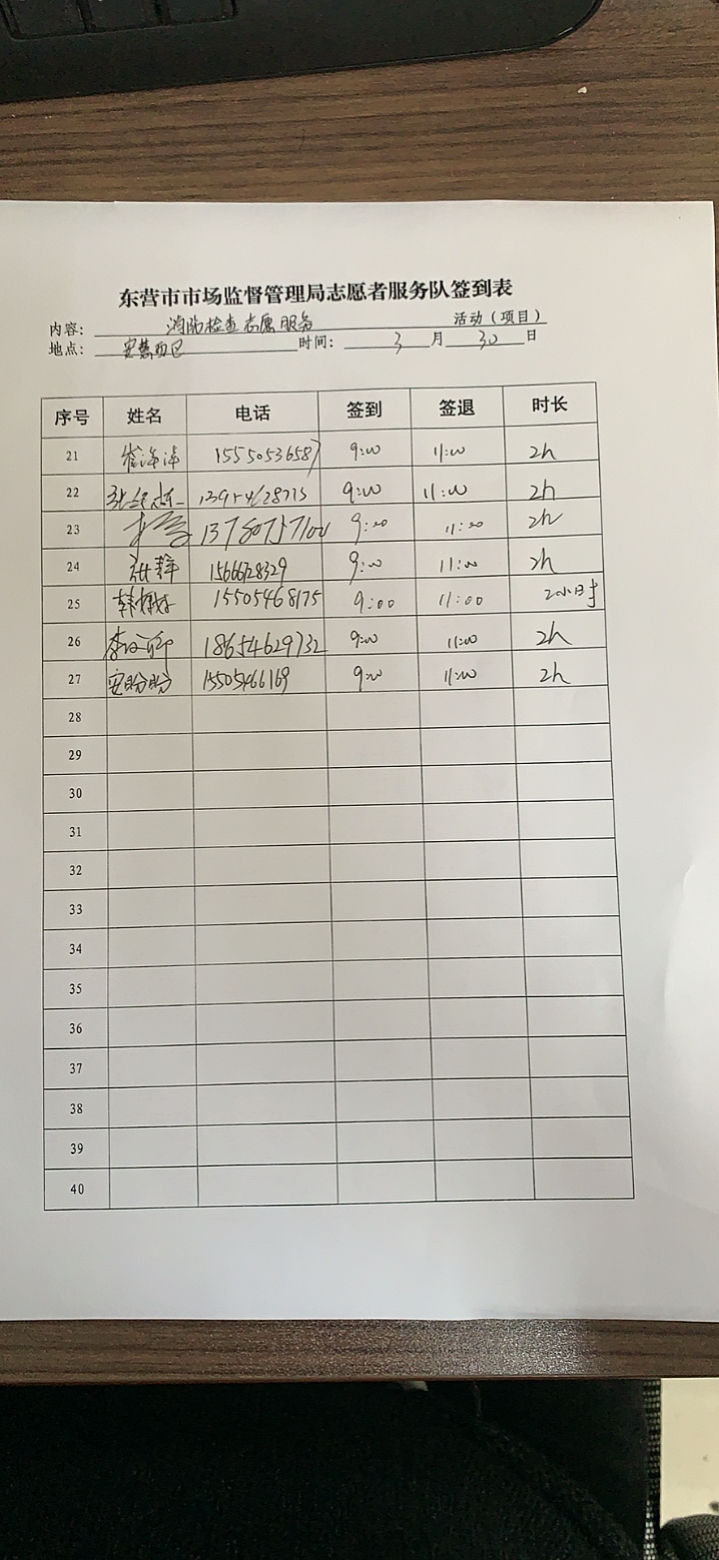 东营市市场监督管理局志愿者服务队签到表
内容: 消防检查志愿服务 活动（项目）
地点: 时间: 3 月 30 日
序号 姓名 电话 签到 签退 时长
21 崔海涛 15550536587 9:00 11:00 2h
22 9:00 11:00 2h
23 9:00 11:00 2h
24 张静 15666728329 9:00 11:00 2h
25 15505468175 9:00 11:00 2小时
26 18654629732 9:00 11:00 2h
27 安盼盼 15505466169 9:00 11:00 2h
28
29
30
31
32
33
34
35
36
37
38
39
40